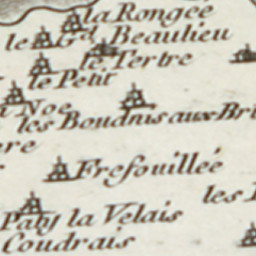 la Rongée
le Gd. Beaulieu
le Tertre
le Petit
Noe
les Boudnis aux Bri
re
Fresouilleé
les
Paty la Velais
Coudrais